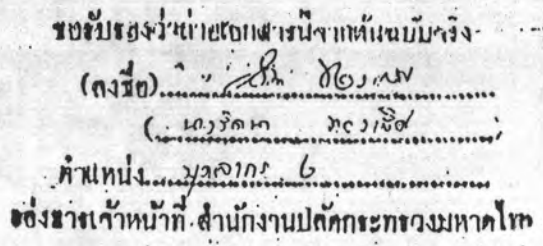 ขอรับรองว่าถ่ายเอกสารนี้จากต้นฉบับจริง
(ลงชื่อ)
(นางรัตนา
ตำแหน่ง บุคลากร 6
กองการเจ้าหน้าที่ สำนักงานปลัดกระทรวงมหาดไทย